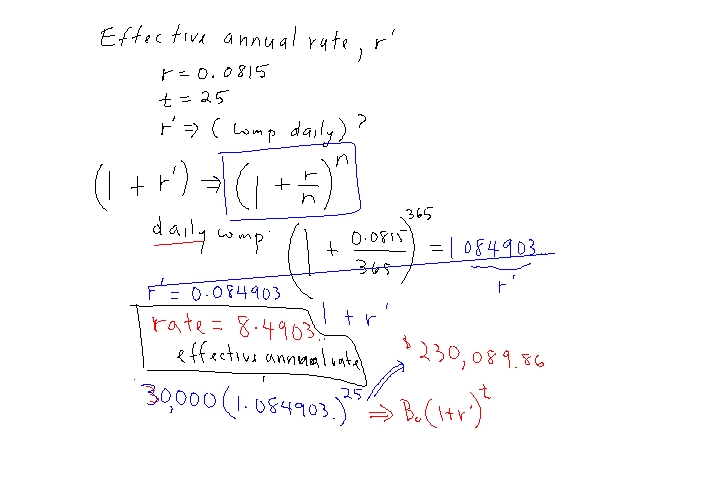 Effective annual rate, r'
r = 0.0815
t = 25
r' ⇒ (comp daily)?
(1 + r') ⇒ (1 + r/n)^n
daily comp. (1 + 0.0815/365)^365 = 1.084903
r'
r' = 0.084903
1 + r'
rate = 8.4903..
effective annual rate
$230,089.86
30,000(1.084903.)^25 ⇒ B₀(1+r')^t